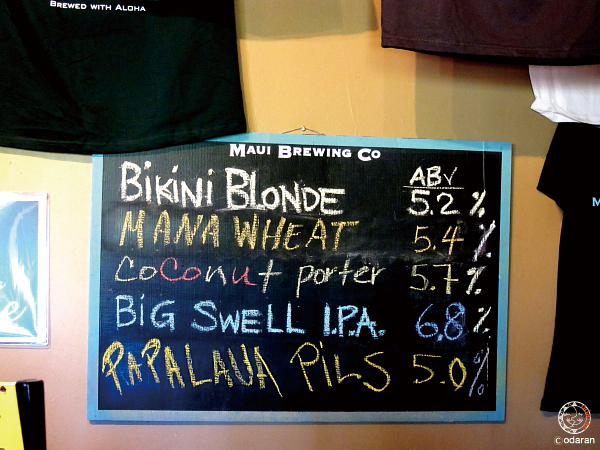 BREWED WITH ALOHA
MAUI BREWING CO
ABV
BIKINI BLONDE 5.2 %
MANA WHEAT 5.4 %
Coconut porter 5.7 %
BIG SWELL I.P.A. 6.8 %
PAPALAUA PILS 5.0 %
© odaran